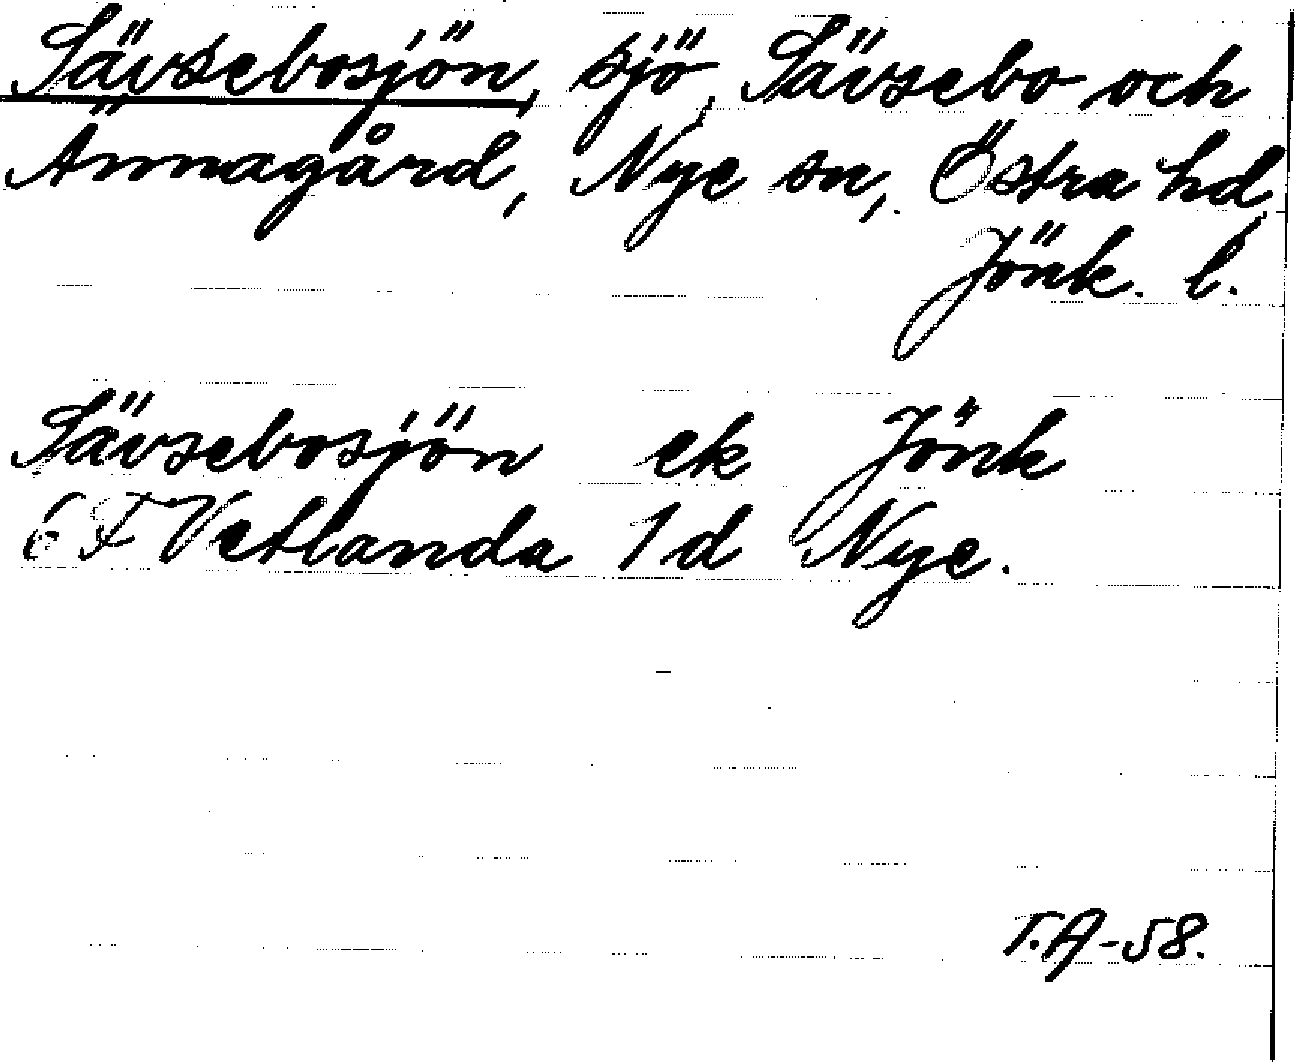 Sävsebosjön, sjö, Sävsebo och
Ännagård, Nye sn, Östra hd,
Jönk. l.
Sävsebosjön ek Jönk
6 F Vetlanda 1d Nye.
T.A-58.